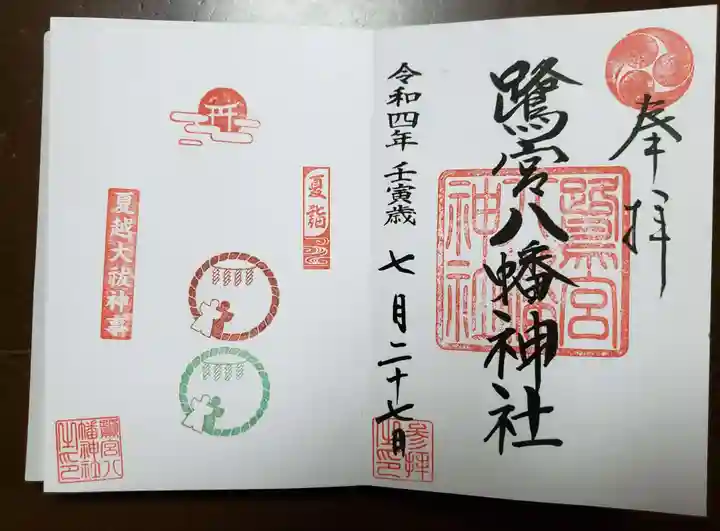 奉拝
鷺宮八幡神社
令和四年 壬寅歳 七月二十七日
参拝之印
夏詣
夏越大祓神事
鷺宮八幡神社之印